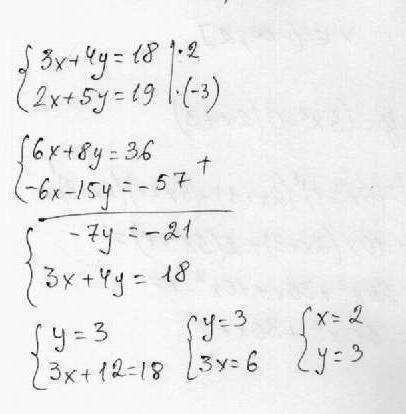 3x+4y=18 |·2
2x+5y=19 |·(-3)
6x+8y=36 +
-6x-15y=-57
-7y=-21
3x+4y=18
y=3 y=3 x=2
3x+12=18 3x=6 y=3